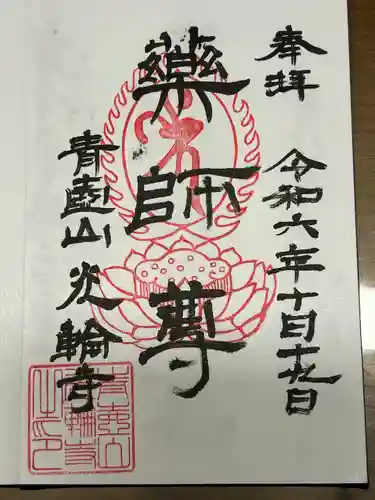 奉拝
令和六年十月十九日
藥師尊
青山
輪寺